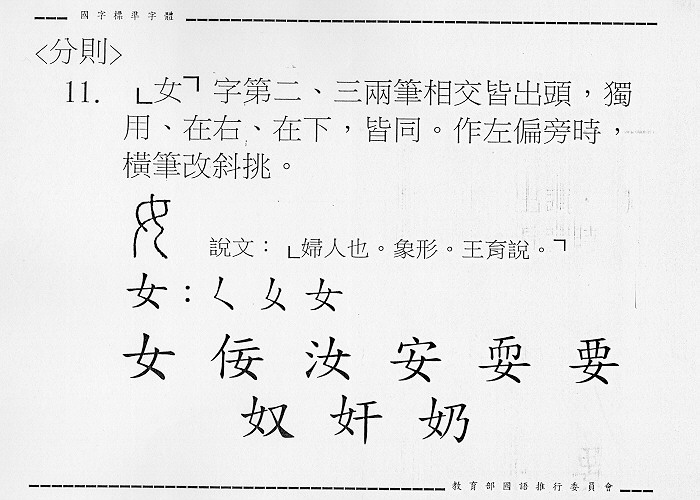 國字標準字體
<分則>
11. 「女」字第二、三兩筆相交皆出頭，獨
用、在右、在下，皆同。作左偏旁時，
橫筆改斜挑。
說文：「婦人也。象形。王育說。」
女：ㄑ 女
女 佞 汝 安 耍 要
奴 奸 奶
教育部國語推行委員會